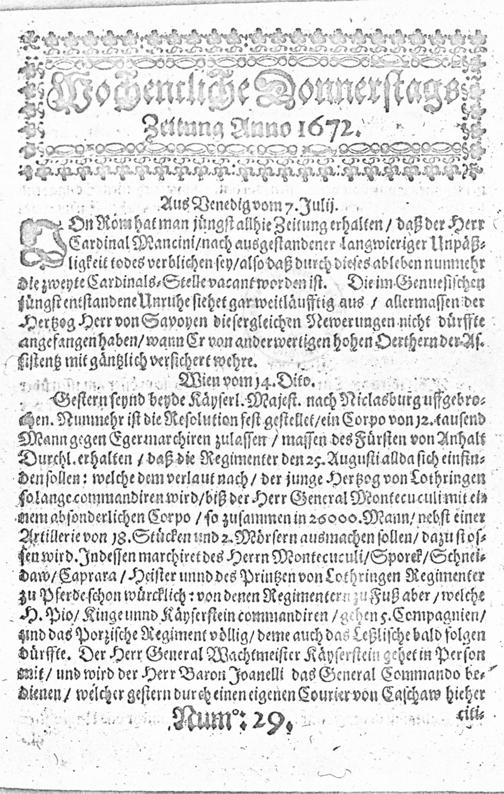 Wochentliche Donnerstags
Zeitung Anno 1672.
Aus Venedig vom 7. Julij.
VOn Rom hat man jüngst allhie Zeitung erhalten / daß der Herr
Cardinal Mancini / nach ausgestandener langwieriger Unpäß-
ligkeit todes verblichen sey / also daß durch dieses ableben nunmehr
die zweyte Cardinals-Stelle vacant worden ist. Die im Genuesischen
jüngst entstandene Unruhe siehet gar weitläufftig aus / allermassen der
Hertzog Herr von Savoyen diesergleichen Newerungen nicht dürffte
angefangen haben / wann Er von anderwertigen hohen Oerthern der As-
sistentz mit gäntzlich versichert wehre.
Wien vom 14. Dito.
Gestern seynd beyde Käyserl. Majest. nach Niclasburg uffgebro-
chen. Nunmehr ist die Resolution fest gestellet / ein Corpo von 12. tausend
Mann gegen Eger marchiren zulassen / massen des Fürsten von Anhalt
Durchl. erhalten / daß die Regimenter den 25. Augusti allda sich einfin-
den sollen: welche dem verlaut nach / der junge Hertzog von Lothringen
so lange commandiren wird / biß der Herr General Montecuculi mit ei-
nem absonderlichen Corpo / so zusammen in 26000. Mann / nebst einer
Artillerie von 18. Stücken und 2. Mörsern ausmachen sollen / dazu stos-
sen wird. Indessen marchiret des Herrn Montecuculi / Sporck / Schnei-
daw / Caprara / Heister unnd des Printzen von Lothringen Regimenter
zu Pferde schon würcklich: von denen Regimentern zu Fuß aber / welche
H. Pio / Kinge unnd Käyserstein commandiren / gehen 5. Compagnien /
und das Porzische Regiment völlig / deme auch das Leßlische bald folgen
dürffte. Der Herr General Wachtmeister Käyserstein gehet in Person
mit / und wird der Herr Baron Joanelli das General Commando be-
dienen / welcher gestern durch einen eigenen Courier von Caschaw hieher
citi-
Num°: 29.